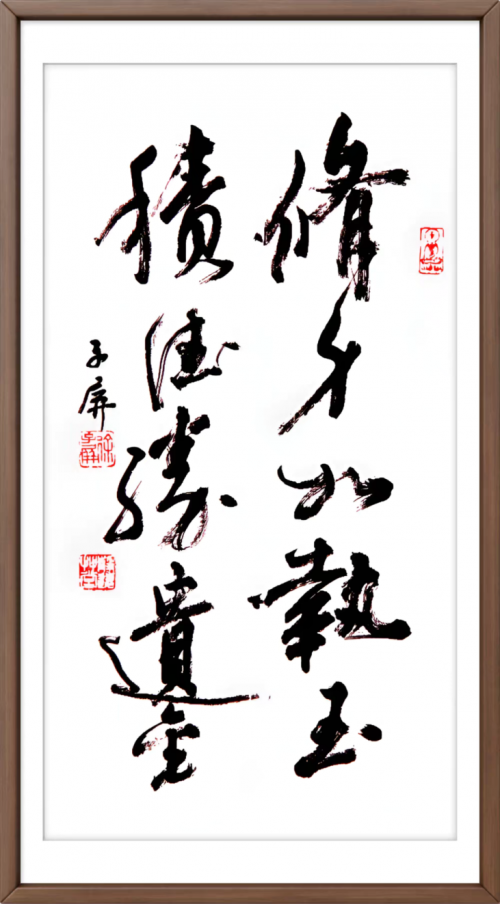 脩身如執玉
積德勝遺金
子屏
徐子屏